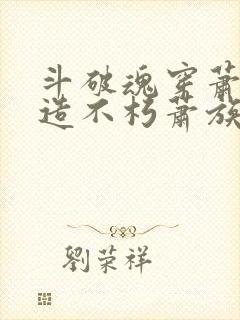 斗破魂穿萧
造不朽萧族
劉荣祥